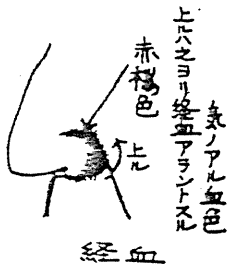 気ノアル血色
上ルハ之ヨリ経血アラントスル
赤褐色
上ル
経血